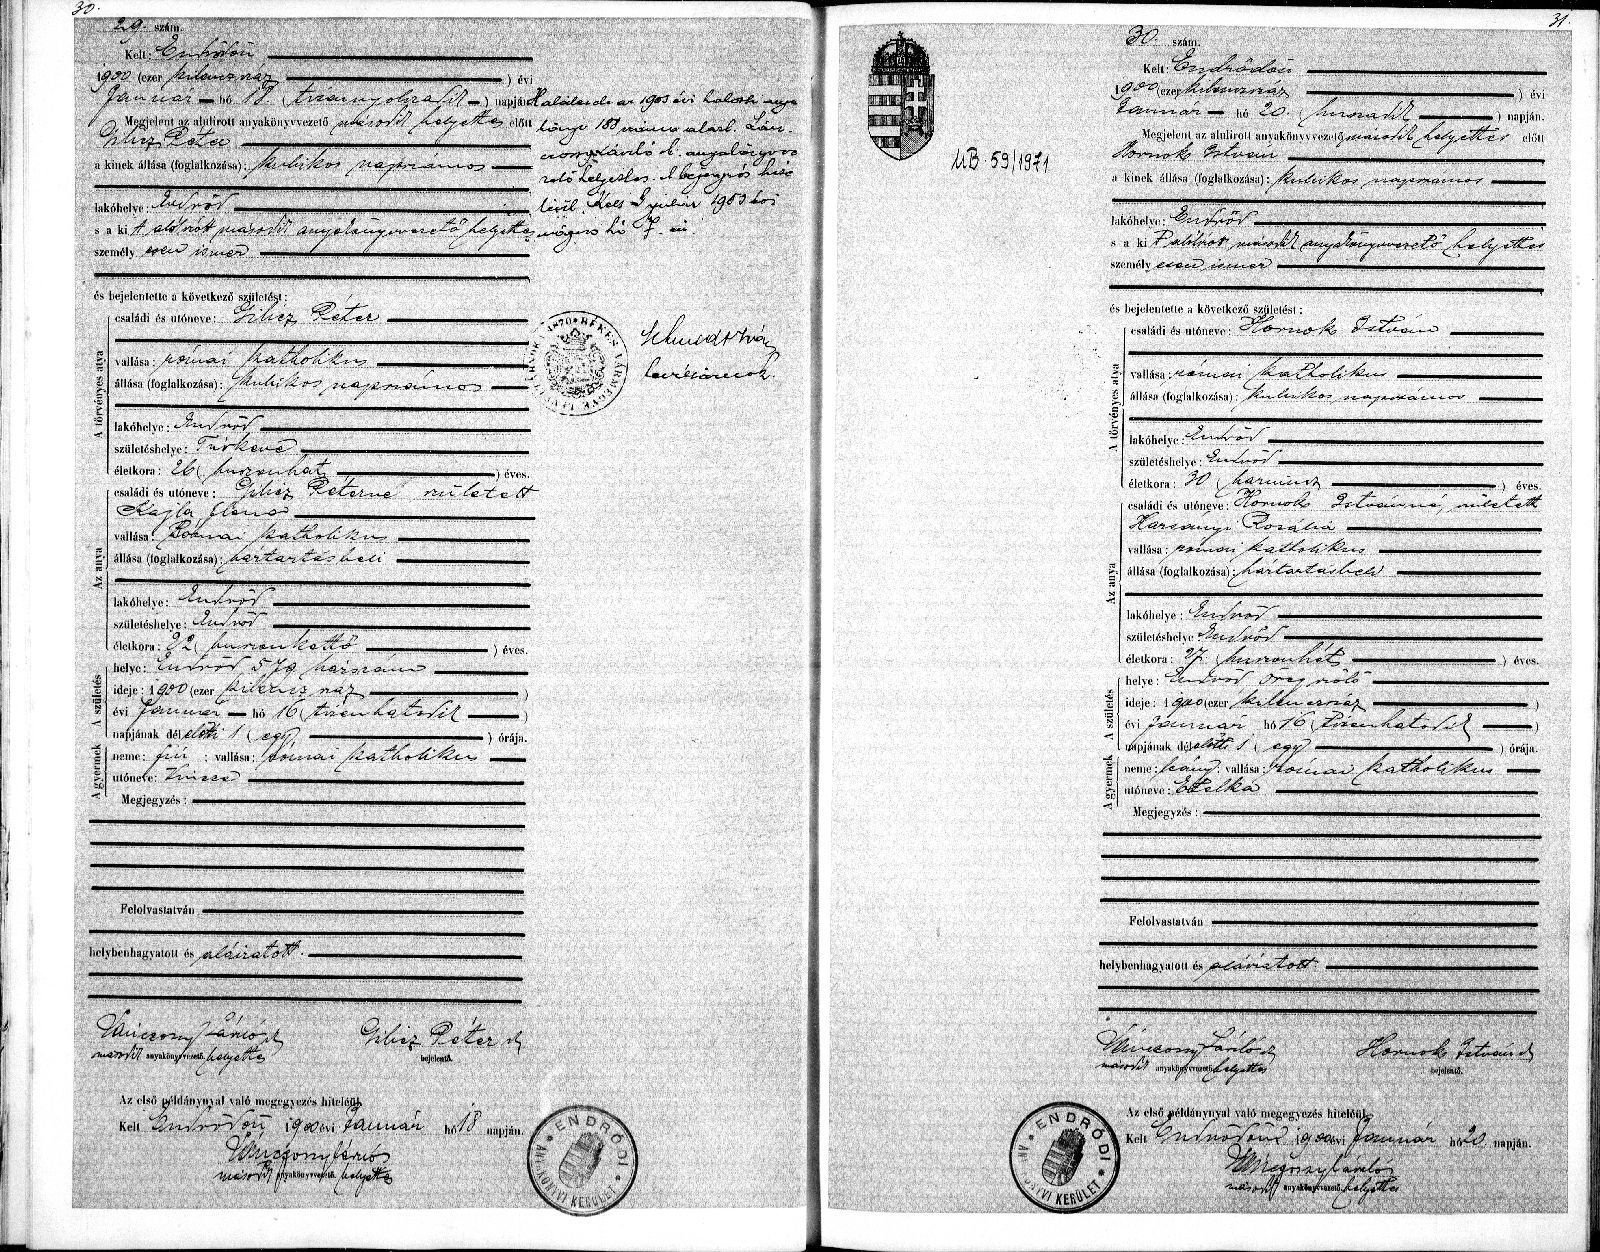 30.
29. szám.
Kelt: Endrődön
1900 (ezer kilenczszáz ) évi
Január hó 18. (tizennyolczadik ) napján
Megjelent az alulirott anyakönyvvezető második helyettes előtt
Gilicz Péter
a kinek állása (foglalkozása): kubikos napszámos
lakóhelye: Endrőd
s a kit alólirott második anyakönyvvezető helyettes
személyesen ismer
és bejelentette a következő születést:
A törvényes atya
családi és utóneve: Gilicz Péter
vallása: római katholikus
állása (foglalkozása): kubikos napszámos
lakóhelye: Endrőd
születéshelye: Túrkeve
életkora: 26 (huszonhat ) éves.
Az anya
családi és utóneve: Gilicz Péterné született
Kajla Ilona
vallása: Római katholikus
állása (foglalkozása): háztartásbeli
lakóhelye: Endrőd
születéshelye: Endrőd
életkora: 22 (huszonkettő ) éves.
A születés
helye: Endrőd 579 házszám
ideje: 1900 (ezer kilenczszáz )
évi Január hó 16 (tizenhatodik )
napjának délelőtti 1 (egy ) órája.
A gyermek
neme: fiú ; vallása: római katholikus
utóneve: Vincze
Megjegyzés:
Felolvastatván
helybenhagyatott és aláiratott.
Vánczony László
második anyakönyvvezető helyettes
Gilicz Péter
bejelentő.
Az első példánynyal való megegyezés hiteléül.
Kelt Endrődön 1900 évi Január hó 18 napján.
második anyakönyvvezető helyettes
ENDRŐDI ANYAKÖNYVI KERÜLET
1903 évi
188 szám alatt
László
helyettes. A bejegyzés
Kelt Gyulán 1903 évi
hó 7. én.
1870 BÉKÉS VÁRMEGYE
31.
MB 59/1971
30. szám.
Kelt: Endrődön
1900 (ezer kilenczszáz ) évi
Január hó 20. (huszadik ) napján.
Megjelent az alulirott anyakönyvvezető második helyettes előtt
Hornok István
a kinek állása (foglalkozása): kubikos napszámos
lakóhelye: Endrőd
s a kit alólirott második anyakönyvvezető helyettes
személyesen ismer
és bejelentette a következő születést:
A törvényes atya
családi és utóneve: Hornok István
vallása: római katholikus
állása (foglalkozása): kubikos napszámos
lakóhelye: Endrőd
születéshelye: Endrőd
életkora: 30 (harmincz ) éves.
Az anya
családi és utóneve: Hornok Istvánné, született
Harsányi Rozália
vallása: római katholikus
állása (foglalkozása): háztartásbeli
lakóhelye: Endrőd
születéshelye Endrőd
életkora: 27 (huszonhét ) éves.
A születés
helye: Endrőd Öregszőlő
ideje: 1900 (ezer kilenczszáz )
évi Január hó 16 (tizenhatodik )
napjának délelőtti 1 (egy ) órája.
A gyermek
neme: leány; vallása: római katholikus
utóneve: Etelka
Megjegyzés:
Felolvastatván
helybenhagyatott és aláiratott.
Vánczony László
második anyakönyvvezető helyettes
Hornok István
bejelentő.
Az első példánynyal való megegyezés hiteléül.
Kelt Endrődön 1900 évi Január hó 20. napján.
második anyakönyvvezető helyettes
ENDRŐDI ANYAKÖNYVI KERÜLET